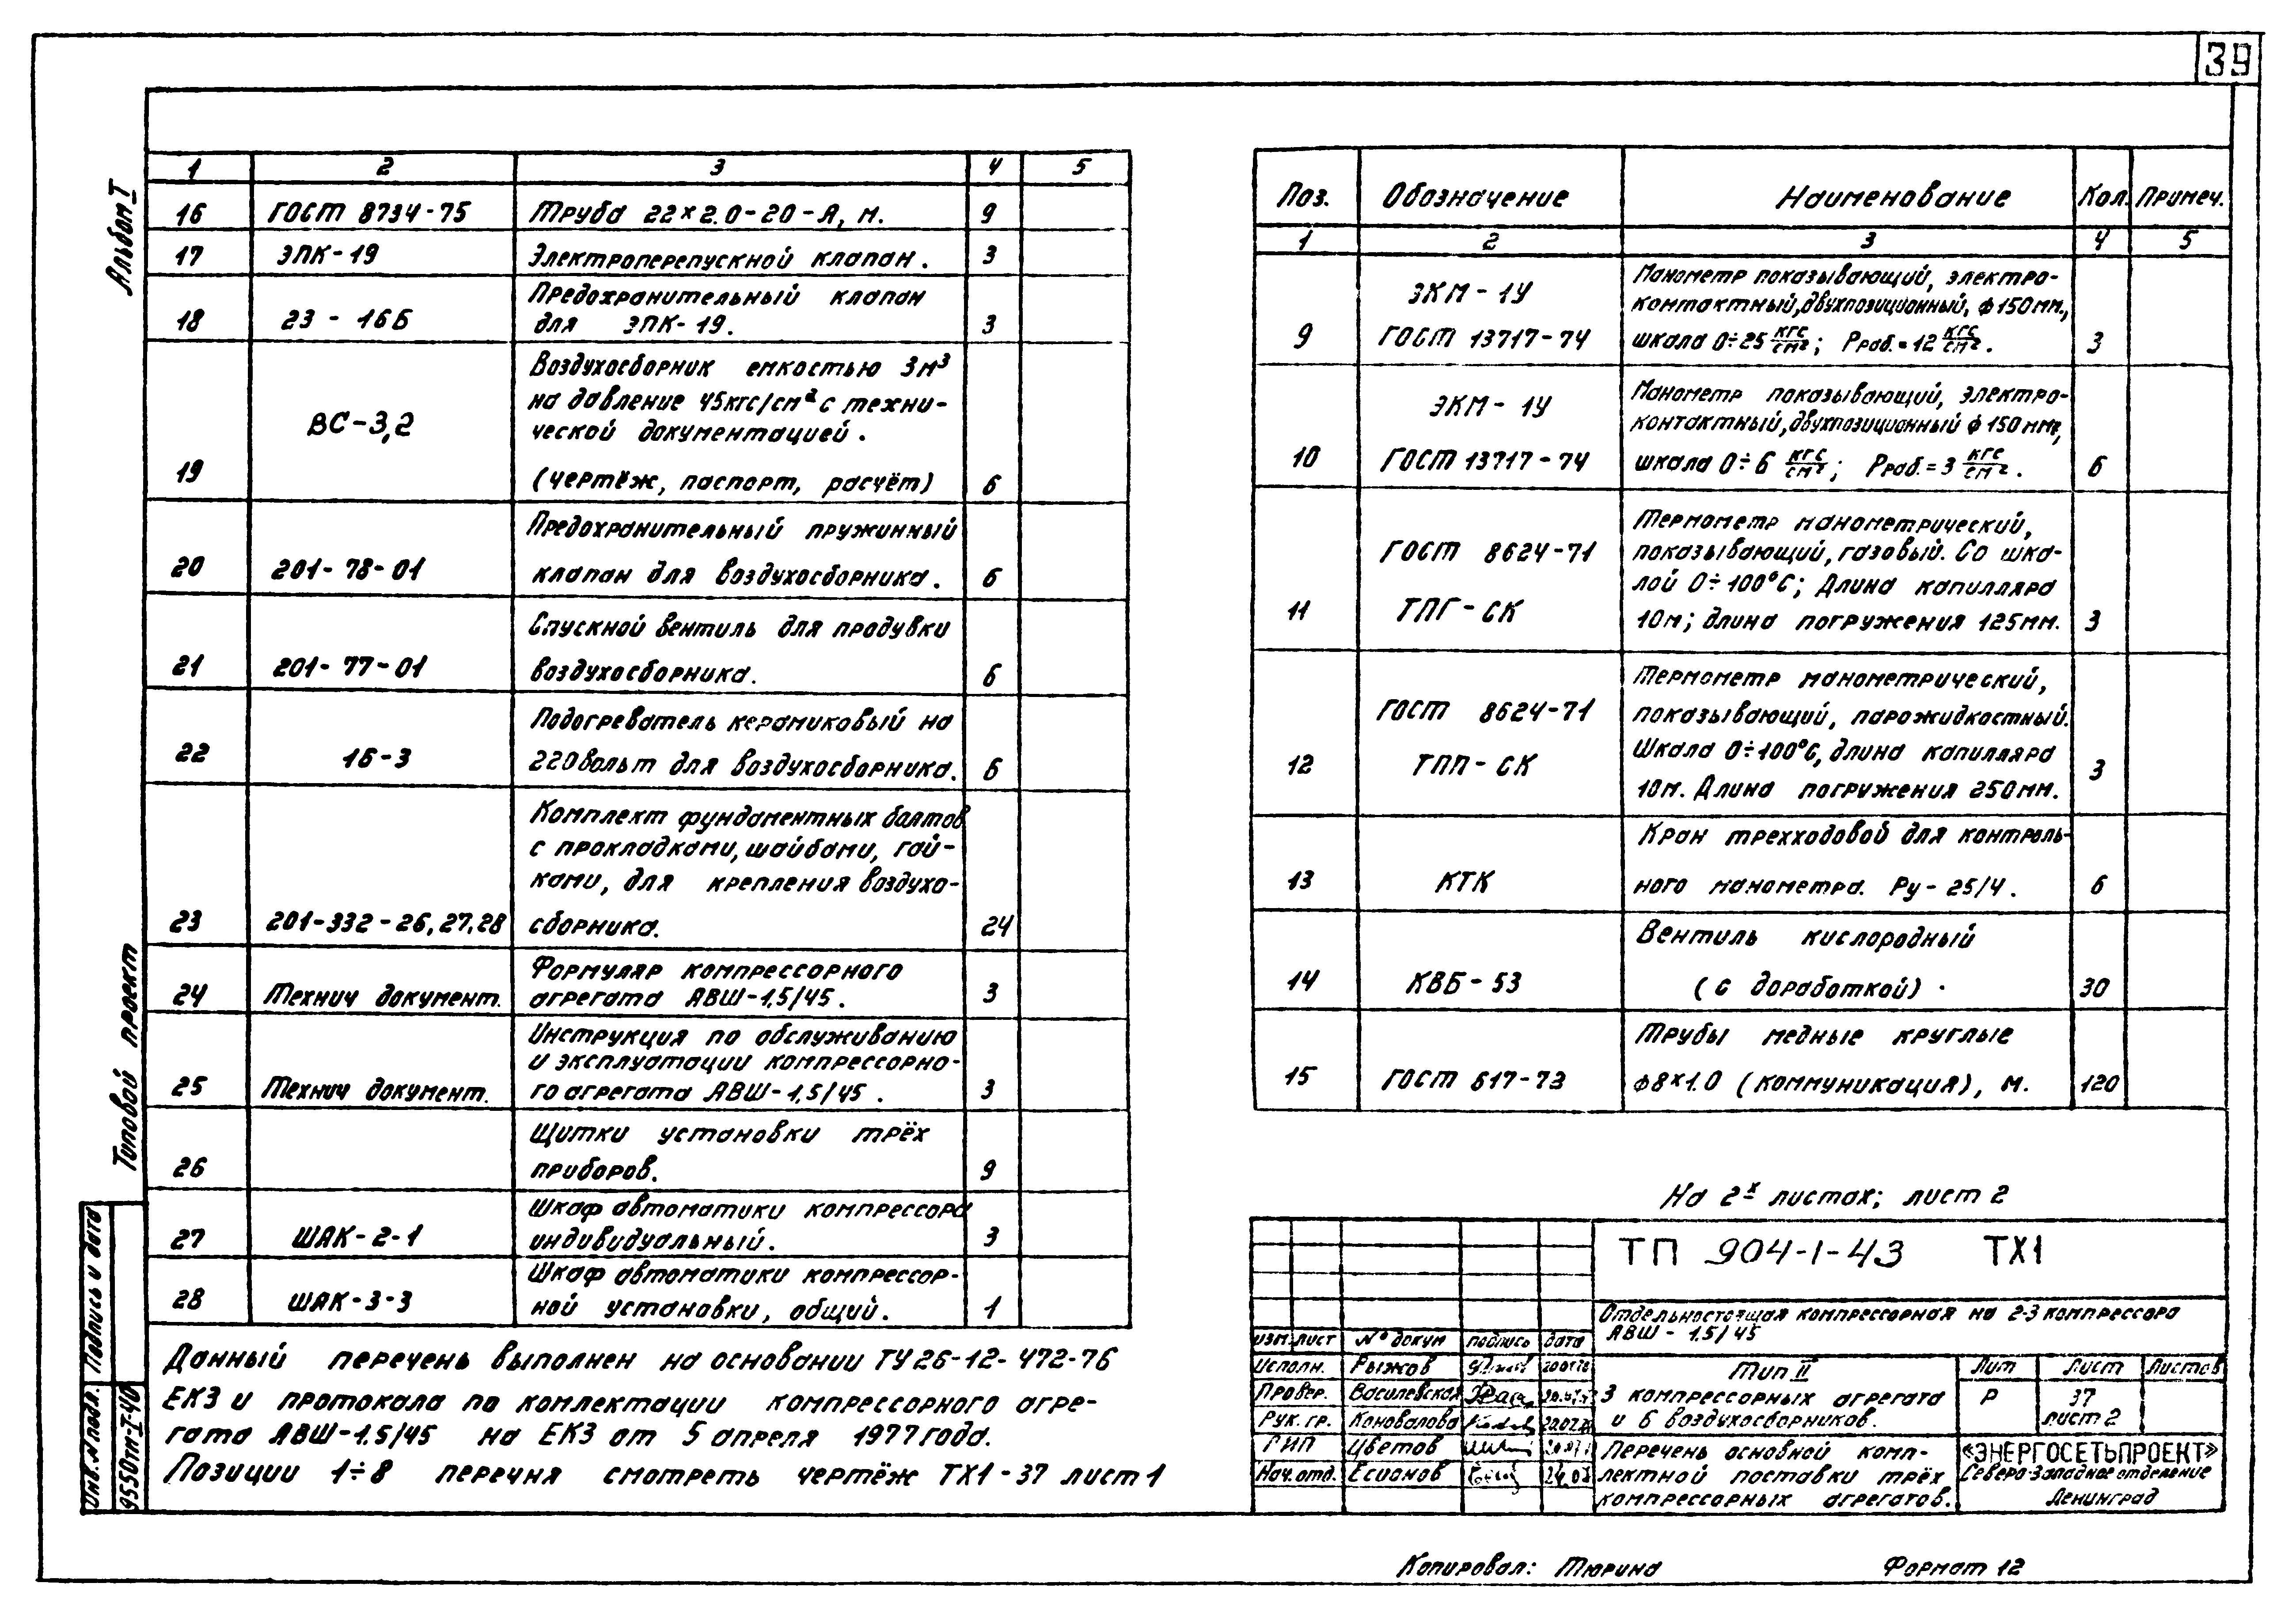 39
Альбом I
Типовой проект
1 2 3 4 5
16 ГОСТ 8734-75 Труба 22×2.0-20-А, м. 9
17 ЭПК-19 Электроперепускной клапан. 3
Предохранительный клапан
18 23-16Б для ЭПК-19. 3
Воздухосборник емкостью 3м³
на давление 45кгс/см² с техни-
ВС-3,2 ческой документацией.
19 (чертёж, паспорт, расчёт) 6
Предохранительный пружинный
20 201-78-01 клапан для воздухосборника. 6
Спускной вентиль для продувки
21 201-77-01 воздухосборника. 6
Подогреватель керамиковый на
22 16-3 220вольт для воздухосборника. 6
Комплект фундаментных болтов
с прокладками, шайбами, гай-
ками, для крепления воздухо-
23 201-332-26,27,28 сборника. 24
Формуляр компрессорного
24 Технич документ. агрегата АВШ-1,5/45. 3
Инструкция по обслуживанию
и эксплуатации компрессорно-
25 Технич документ. го агрегата АВШ-1,5/45. 3
Щитки установки трёх
26 приборов. 9
Шкаф автоматики компрессора
27 ШАК-2-1 индивидуальный. 3
Шкаф автоматики компрессор-
28 ШАК-3-3 ной установки, общий. 1
Данный перечень выполнен на основании ТУ26-12-472-76
ЕКЗ и протокола по комлектации компрессорного агре-
гата АВШ-1.5/45 на ЕКЗ от 5 апреля 1977года.
Позиции 1÷8 перечня смотреть чертёж ТХ1-37 лист 1
Поз. Обозначение Наименование Кол. Примеч.
1 2 3 4 5
Манометр показывающий, электро-
ЭКМ-1У контактный, двухпозиционный, ф150мм.,
9 ГОСТ 13717-74 шкала 0÷25 кгс/см²; Рраб.=12 кгс/см². 3
Манометр показывающий, электро-
ЭКМ-1У контактный, двухпозиционный ф150мм,
10 ГОСТ 13717-74 шкала 0÷6 кгс/см²; Рраб.=3 кгс/см². 6
Термометр манометрический,
ГОСТ 8624-71 показывающий, газовый. Со шка-
лой 0÷100°С; Длина капилляра
11 ТПГ-СК 10м; длина погружения 125мм. 3
Термометр манометрический,
ГОСТ 8624-71 показывающий, парожидкостный.
Шкала 0÷100°С, длина капилляра
12 ТПП-СК 10м. Длина погружения 250мм. 3
Кран трехходовой для контроль-
13 КТК ного манометра. Ру-25/4. 6
Вентиль кислородный
14 КВБ-53 (с доработкой). 30
Трубы медные круглые
15 ГОСТ 617-73 ф8×1.0 (коммуникация), м. 120
На 2х листах; лист 2
ТП 904-1-43 ТХ1
Отдельностоящая компрессорная на 2-3 компрессора
АВШ-1.5/45
изм. лист № докум подпись дата
Исполн. Рыжов
Провер. Василевская
Рук. гр. Коновалова
ГИП Цветов
Нач. отд. Есионов
Тип II
3 компрессорных агрегата
и 6 воздухосборников.
Лит Лист Листов
Р 37
лист 2
Перечень основной комп-
лектной поставки трёх
компрессорных агрегатов.
«ЭНЕРГОСЕТЬПРОЕКТ»
Северо-Западное отделение
Ленинград
Инв. N подл. Подпись и дата
9550тм-I-40
Копировал: Тюрина Формат 12